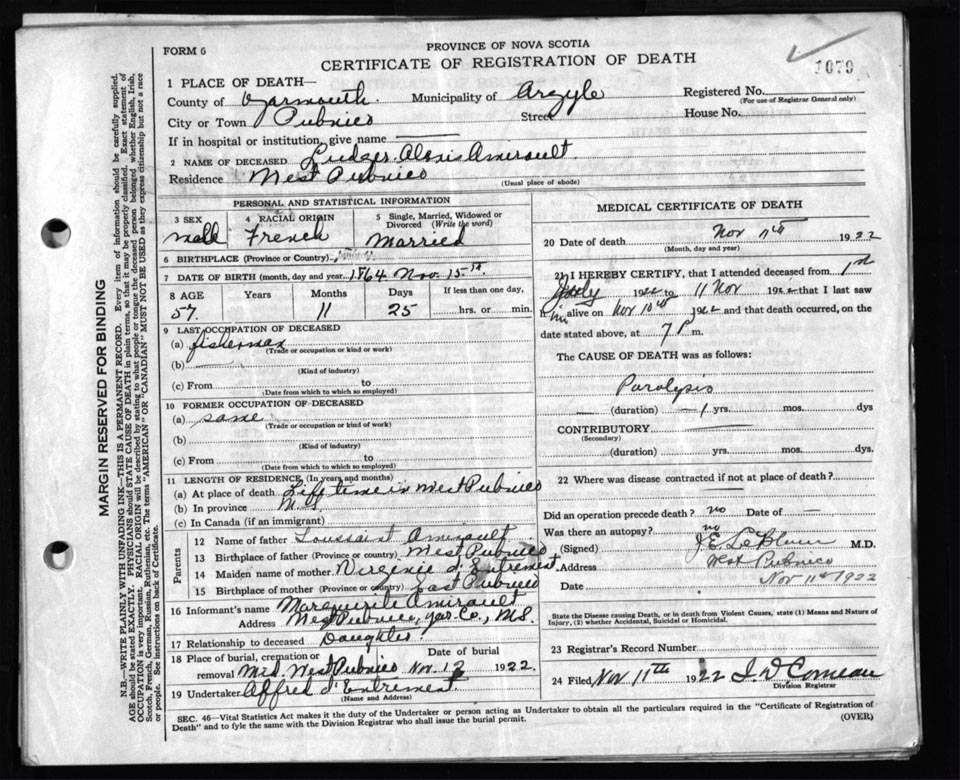 FORM 6
PROVINCE OF NOVA SCOTIA
CERTIFICATE OF REGISTRATION OF DEATH
1079
1 PLACE OF DEATH—
County of Yarmouth. Municipality of Argyle Registered No.
(For use of Registrar General only)
City or Town Pubnico Street House No.
If in hospital or institution, give name
2 NAME OF DECEASED Ludger Alexis Amirault
Residence West Pubnico
(Usual place of abode)
PERSONAL AND STATISTICAL INFORMATION
3 SEX male
4 RACIAL ORIGIN French
5 Single, Married, Widowed or Divorced (Write the word) Married
6 BIRTHPLACE (Province or Country)
7 DATE OF BIRTH (month, day and year) 1864 Nov. 15th.
8 AGE Years Months Days If less than one day,
57. 11 25 hrs. or min.
9 LAST OCCUPATION OF DECEASED
(a) fisherman
(Trade or occupation or kind or work)
(b)
(Kind of industry)
(c) From to
(Date from which to which so employed)
10 FORMER OCCUPATION OF DECEASED
(a) same
(Trade or occupation or kind of work)
(b)
(Kind of industry)
(c) From to
(Date from which to which so employed)
11 LENGTH OF RESIDENCE (In years and months)
(a) At place of death Life time in West Pubnico
(b) In province N.S.
(c) In Canada (if an immigrant)
Parents
12 Name of father Toussaint Amirault
13 Birthplace of father (Province or country) West Pubnico
14 Maiden name of mother Virginie d'Entremont
15 Birthplace of mother (Province or country) East Pubnico
16 Informant's name Marguerite Amirault
Address West Pubnico, Yar. Co., N.S.
17 Relationship to deceased Daughter
18 Place of burial, cremation or removal Mid. West Pubnico Date of burial Nov. 12 1922.
19 Undertaker Alfred d'Entremont
(Name and Address)
MEDICAL CERTIFICATE OF DEATH
20 Date of death Nov 11th 1922
(Month, day and year)
21 I HEREBY CERTIFY, that I attended deceased from 1st
July 1922 to 11 Nov 1922 that I last saw
him alive on Nov 10th 1922 and that death occurred, on the
date stated above, at 7 P. m.
The CAUSE OF DEATH was as follows:
Paralysis
(duration) 1 yrs. mos. dys
CONTRIBUTORY
(Secondary)
(duration) yrs. mos. dys.
22 Where was disease contracted if not at place of death?
Did an operation precede death? no Date of —
Was there an autopsy? no
(Signed) J.E. LeBlanc M.D.
Address West Pubnico
Date Nov 11th 1922
State the Disease causing Death, or in death from Violent Causes, state (1) Means and Nature of
Injury, (2) whether Accidental, Suicidal or Homicidal.
23 Registrar's Record Number
24 Filed Nov 11th 1922 Comeau
Division Registrar
SEC. 46—Vital Statistics Act makes it the duty of the Undertaker or person acting as Undertaker to obtain all the particulars required in the "Certificate of Registration of
Death" and to fyle the same with the Division Registrar who shall issue the burial permit.
(OVER)
MARGIN RESERVED FOR BINDING
N.B.—WRITE PLAINLY WITH UNFADING INK—THIS IS A PERMANENT RECORD. Every item of information should be carefully supplied.
AGE should be stated EXACTLY. PHYSICIANS should STATE CAUSE OF DEATH in plain terms, so that it may be properly classified. Exact statement of
OCCUPATION is very important. RACIAL ORIGIN will be described by stating to what people or tongue the deceased person belonged whether English, Irish,
Scotch, French, German, Russian, Ruthenian, etc. The terms "AMERICAN" OR "CANADIAN" MUST NOT BE USED as they express citizenship but not a race
or people. See instructions on back of Certificate.